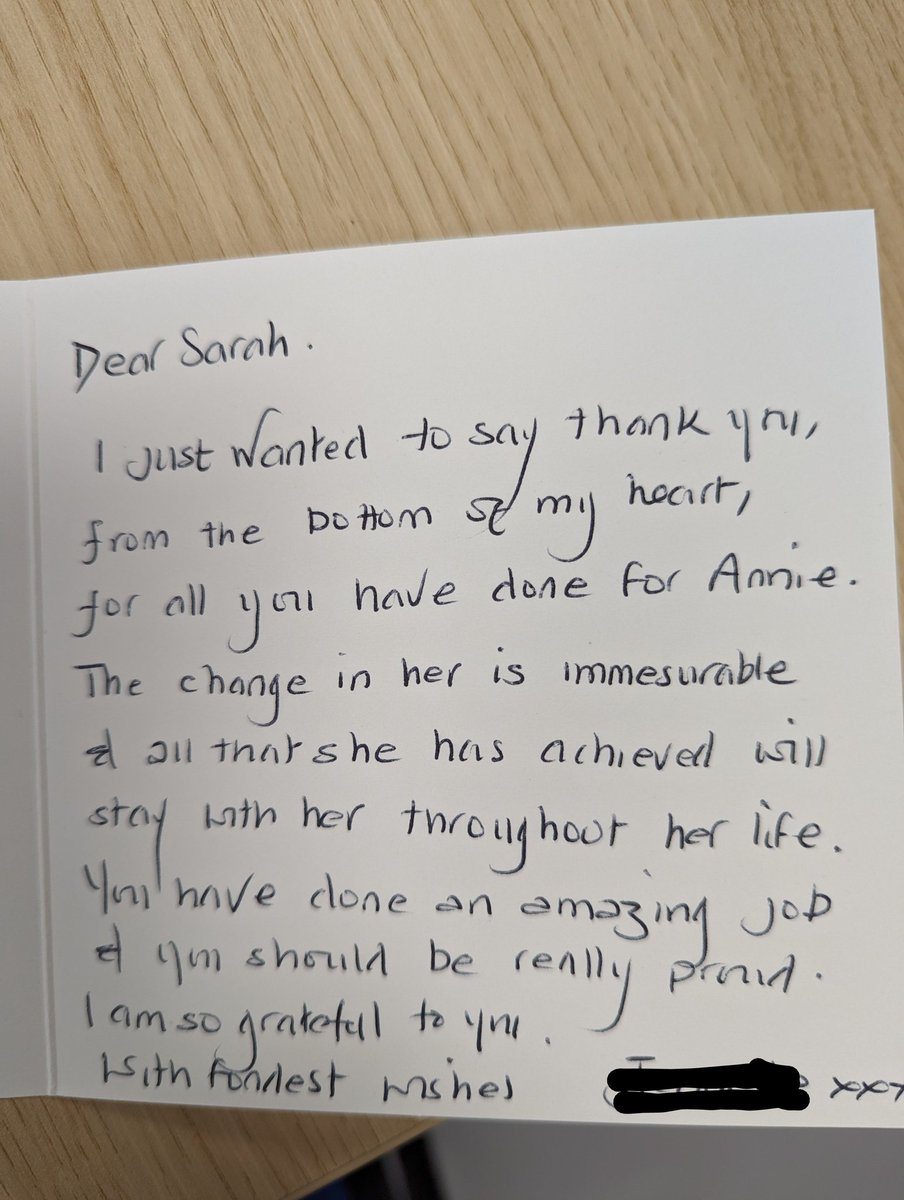 Dear Sarah.
I just wanted to say thank you,
from the bottom of my heart,
for all you have done for Annie.
The change in her is immesurable
& all that she has achieved will
stay with her throughout her life.
You have done an amazing job
& you should be really proud.
I am so grateful to you.
With fondest wishes xxx